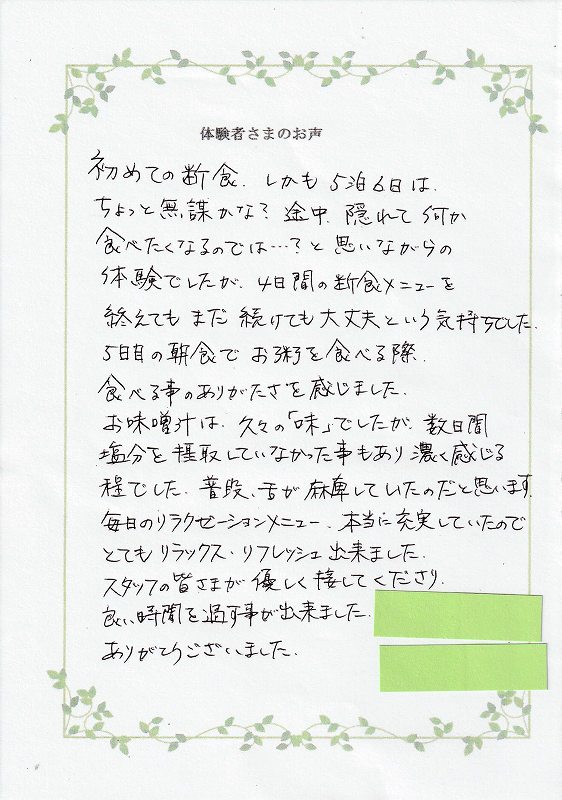 体験者さまのお声
初めての断食、しかも5泊6日は、
ちょっと無謀かな？途中、隠れて何か
食べたくなるのでは…？と思いながらの
体験でしたが、4日間の断食メニューを
終えてもまだ続けても大丈夫という気持ちでした。
5日目の朝食でお粥を食べる際、
食べる事のありがたさを感じました。
お味噌汁は、久々の「味」でしたが、数日間
塩分を摂取していなかった事もあり濃く感じる
程でした。普段、舌が麻痺していたのだと思います。
毎日のリラクゼーションメニュー、本当に充実していたので
とてもリラックス・リフレッシュ出来ました。
スタッフの皆さまが優しく接してくださり、
良い時間を過す事が出来ました。
ありがとうございました。